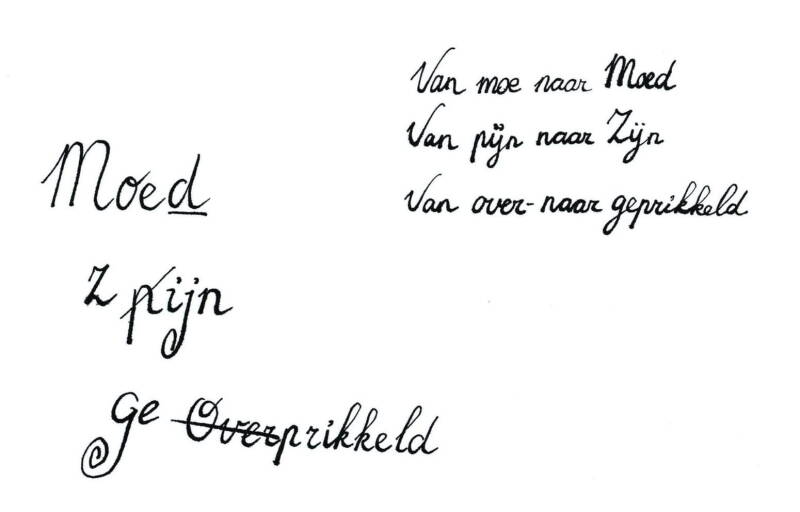 Van moe naar Moed
Van pijn naar Zijn
Van over- naar geprikkeld
Moed
Z pijn
ge Overprikkeld